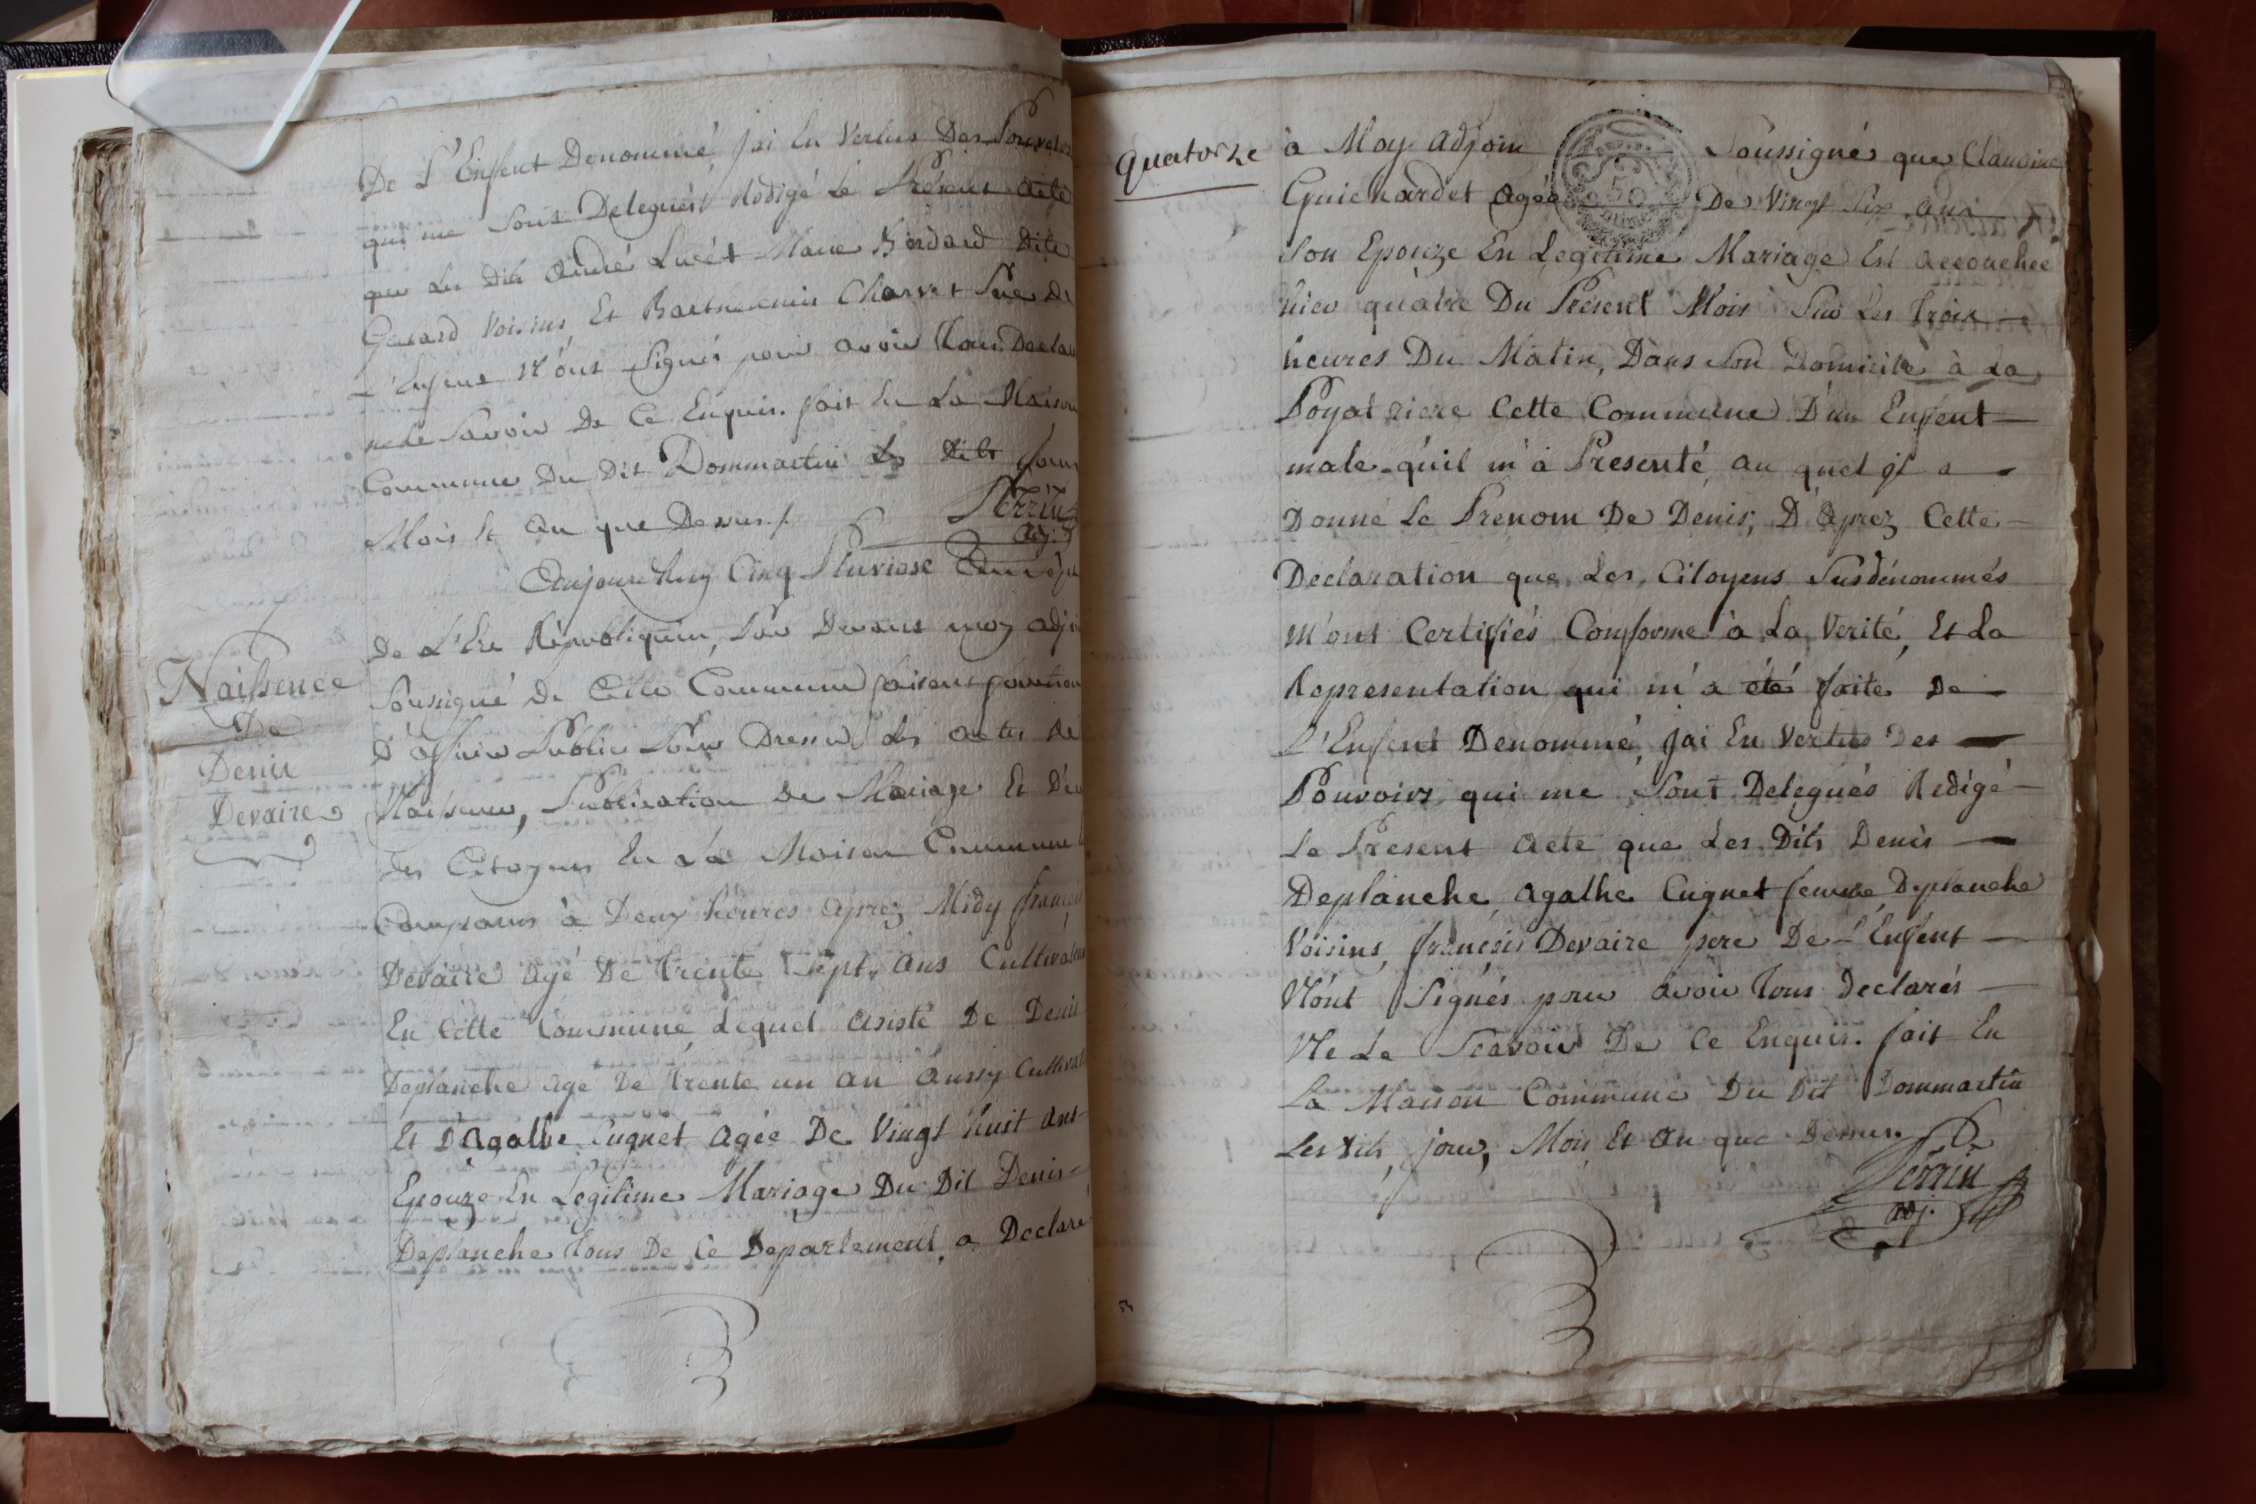 De L'Enfent Denommé, jai En Vertus Des Pouvoirs
qui me Sont Delegués Redigé Le Présent Acte
que Les Dits André Lucét Marie Bordard dite
Gerard Voisins Et Charvet Pere De
L'Enfent N'ont Signés pour avoir Tous Declaré
ne Le Savoir De Ce Enquis. fait En La Maison
Commune Du Dit Dommartin Les Dits jour
Mois Et An que Dessus./.
Perrin
adj.
Aujourdhuy Cinq Pluviose An Sept
De L'Ere Républiquein, Par Devant moy adjoin
Sousigné De Cette Commune faisant fonction
D'officier Public Pour Dresser Les actes De
Naissence, Publication De Mariage Et Déces
Des Citoyens En La Maison Commune
à Deux héures àprez Midy francois
Devaire agé De trente Sept Ans Cultivateur
En Cette Commune Lequel Asisté De Denis
Deplanche agé De trente un an Aussy Cultivateur
Et D'Agathe Cugnet Agée De Vingt huit Ans
Epouze En Legitime Mariage Du Dit Denis
Deplanche tous De Ce Departement, a Declaré
Naissence
De
Denis
Devaire
Quatorze
à Moy Adjoin Soussigné que Claudine
Guichardet Agée De Vingt Six Ans
50
Son Epouze En Legitime Mariage Est accouchée
hier quatre Du Present Mois Sur Les Trois
heures Du Matin, Dans Son Domicile à La
Cette Commune D'un Enfent
male qu'il m'à Presenté, au quel il a
Donné Le Prenom De Denis, D'Aprez Cette
Declaration que Les Citoyens Susdénommés
M'ont Certifiés Conforme à La Verité, Et La
Representation qui m'a été faite De
L'Enfent Denommé, jai En Vertus Des
Pouvoirs qui me Sont Delegués Redigé
Le Present Acte que Les Dits Denis
Deplanche Agathe Cugnet femme Deplanche
Voisins, francois Devaire pere De L'Enfent
N'ont Signés pour avoir Tous Declarés
Ne Le Scavoir De Ce Enquis. fait En
La Maison Commune Du Dit Dommartin
Les dits, jour, Mois Et An que Dessus.
Perrin
adj.